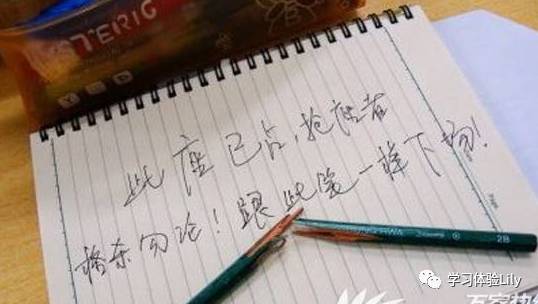 STERIG
此座已占，抢座者
格杀勿论！跟此笔一样下场！
2B
学习体验Lily